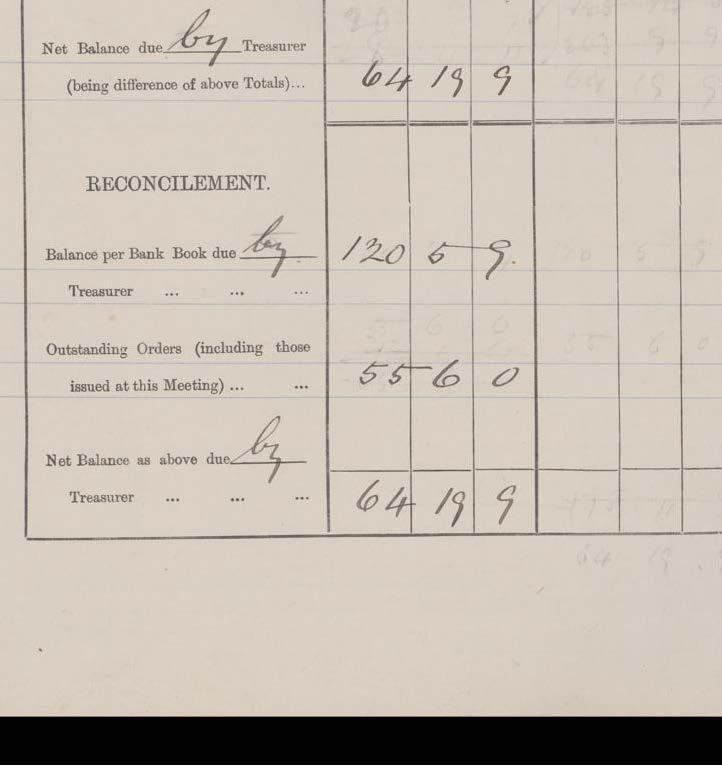 Net Balance due by Treasurer
(being difference of above Totals)... 64 19 9
RECONCILEMENT.
Balance per Bank Book due by 120 5 9.
Treasurer ... ... ...
Outstanding Orders (including those
issued at this Meeting) ... ... 55 6 0
Net Balance as above due by
Treasurer ... ... ... 64 19 9
64 19